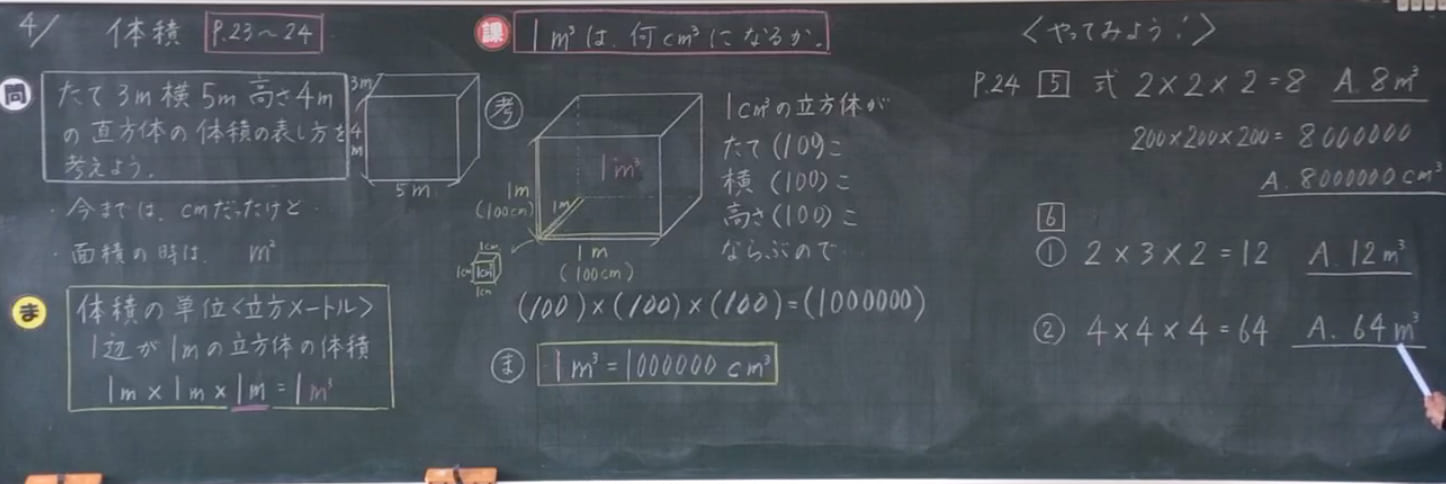 4/ 体積 P.23～24
問
たて3m横5m高さ4m
の直方体の体積の表し方を
考えよう。
3m
4m
5m
・今までは、cmだったけど…
・面積の時は、 m²
ま
体積の単位〈立方メートル〉
1辺が1mの立方体の体積
1m×1m×1m=1m³
課 1m³は、何cm³になるか。
考
1m³
1m
(100cm)
1m
1m
(100cm)
1cm
1cm 1cm³
1cm
1cm³の立方体が
たて(100)こ
横(100)こ
高さ(100)こ
ならぶので…
(100)×(100)×(100)=(1000000)
ま 1m³=1000000cm³
〈やってみよう!〉
P.24 5 式 2×2×2=8 A.8m³
200×200×200=8000000
A.8000000cm³
6
① 2×3×2=12 A.12m³
② 4×4×4=64 A.64m³